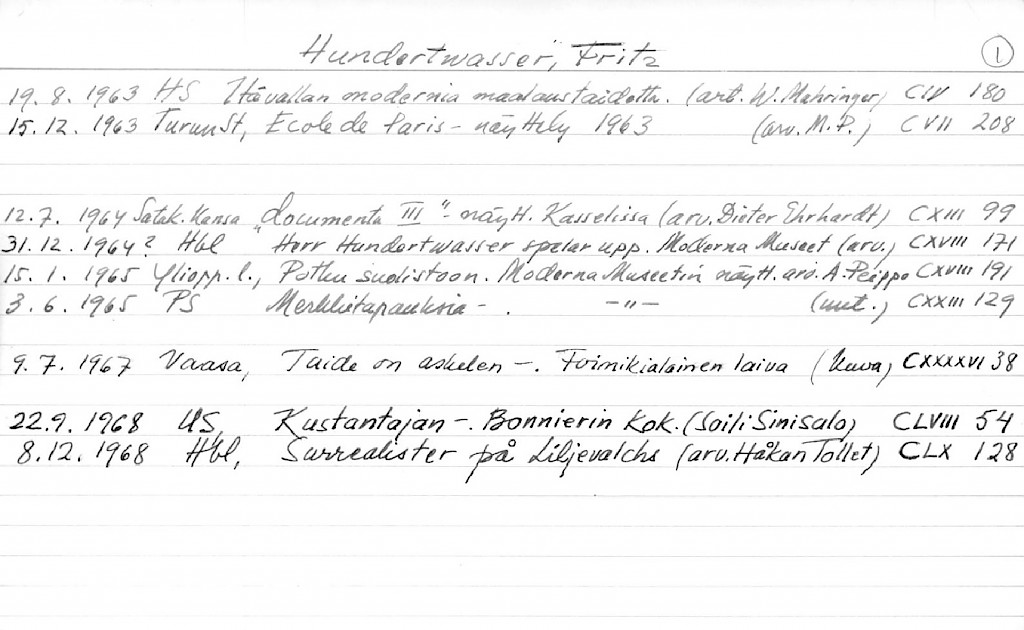 Hundertwasser, Fritz 1
19.8.1963 HS Itävallan modernia maalaustaidetta. (art. W. Mahringer) CIV 180
15.12.1963 TurunSt, Ecole de Paris - näyttely 1963 (arv. M.P.) CVII 208
12.7.1964 Satak. Kansa "documenta III" - näytt. Kasselissa (arv. Dieter Ehrhardt) CXIII 99
31.12.1964? Hbl Herr Hundertwasser spelar upp. Moderna Museet (arv.) CXVIII 171
15.1.1965 Yliopp. l., Polku suolistoon. Moderna Museetin näytt. arv. A. Peippo CXVIII 191
3.6.1965 PS - . - " - CXXIII 129
9.7.1967 Vaasa, Taide on askelen -. laiva (kuva) CXXXXVI 38
22.9.1968 US, Kustantajan -. Bonnierin Kok. (Soili Sinisalo) CLVIII 54
8.12.1968 Hbl, Surrealister på Liljevalchs (arv. Håkan Tollet) CLX 128